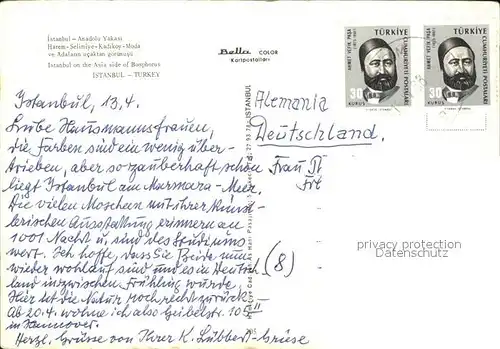 İstanbul - Anadolu Yakası
Harem - Selimiye - Kadıköy - Moda
ve Adaların uçaktan görünüşü
Istanbul on the Asia side of Bosphorus
İSTANBUL - TURKEY
Bella COLOR
"Kartpostalları"
TÜRKİYE
CUMHURİYETİ POSTALARI
AHMET VEFİK PAŞA
30
KURUŞ
TÜRKİYE
CUMHURİYETİ POSTALARI
AHMET VEFİK PAŞA
30
KURUŞ
Istanbul, 13.4.
Liebe Hausmannsfrauen,
die Farben sind ein wenig über-
trieben, aber so zauberhaft schön
liegt Istanbul am Marmara-Meer.
Die vielen Moscheen mit ihrer künst-
lerischen Ausstattung erinnern an
1001 Nacht u. sind des Studiums
wert. Ich hoffe, dass Sie Beide nun
wieder wohlauf sind und es in Deutsch-
land inzwischen Frühling wurde.
Hier ist die Natur noch recht zurück.
Ab 20.4. wohne ich also Geibelstr. 105 II
in Hannover.
Herzl. Grüsse von Ihrer K. Lübbert-Griese
İSTANBUL
Alemania
Deutschland.
Frau
(8)
privacy protection
Datenschutz